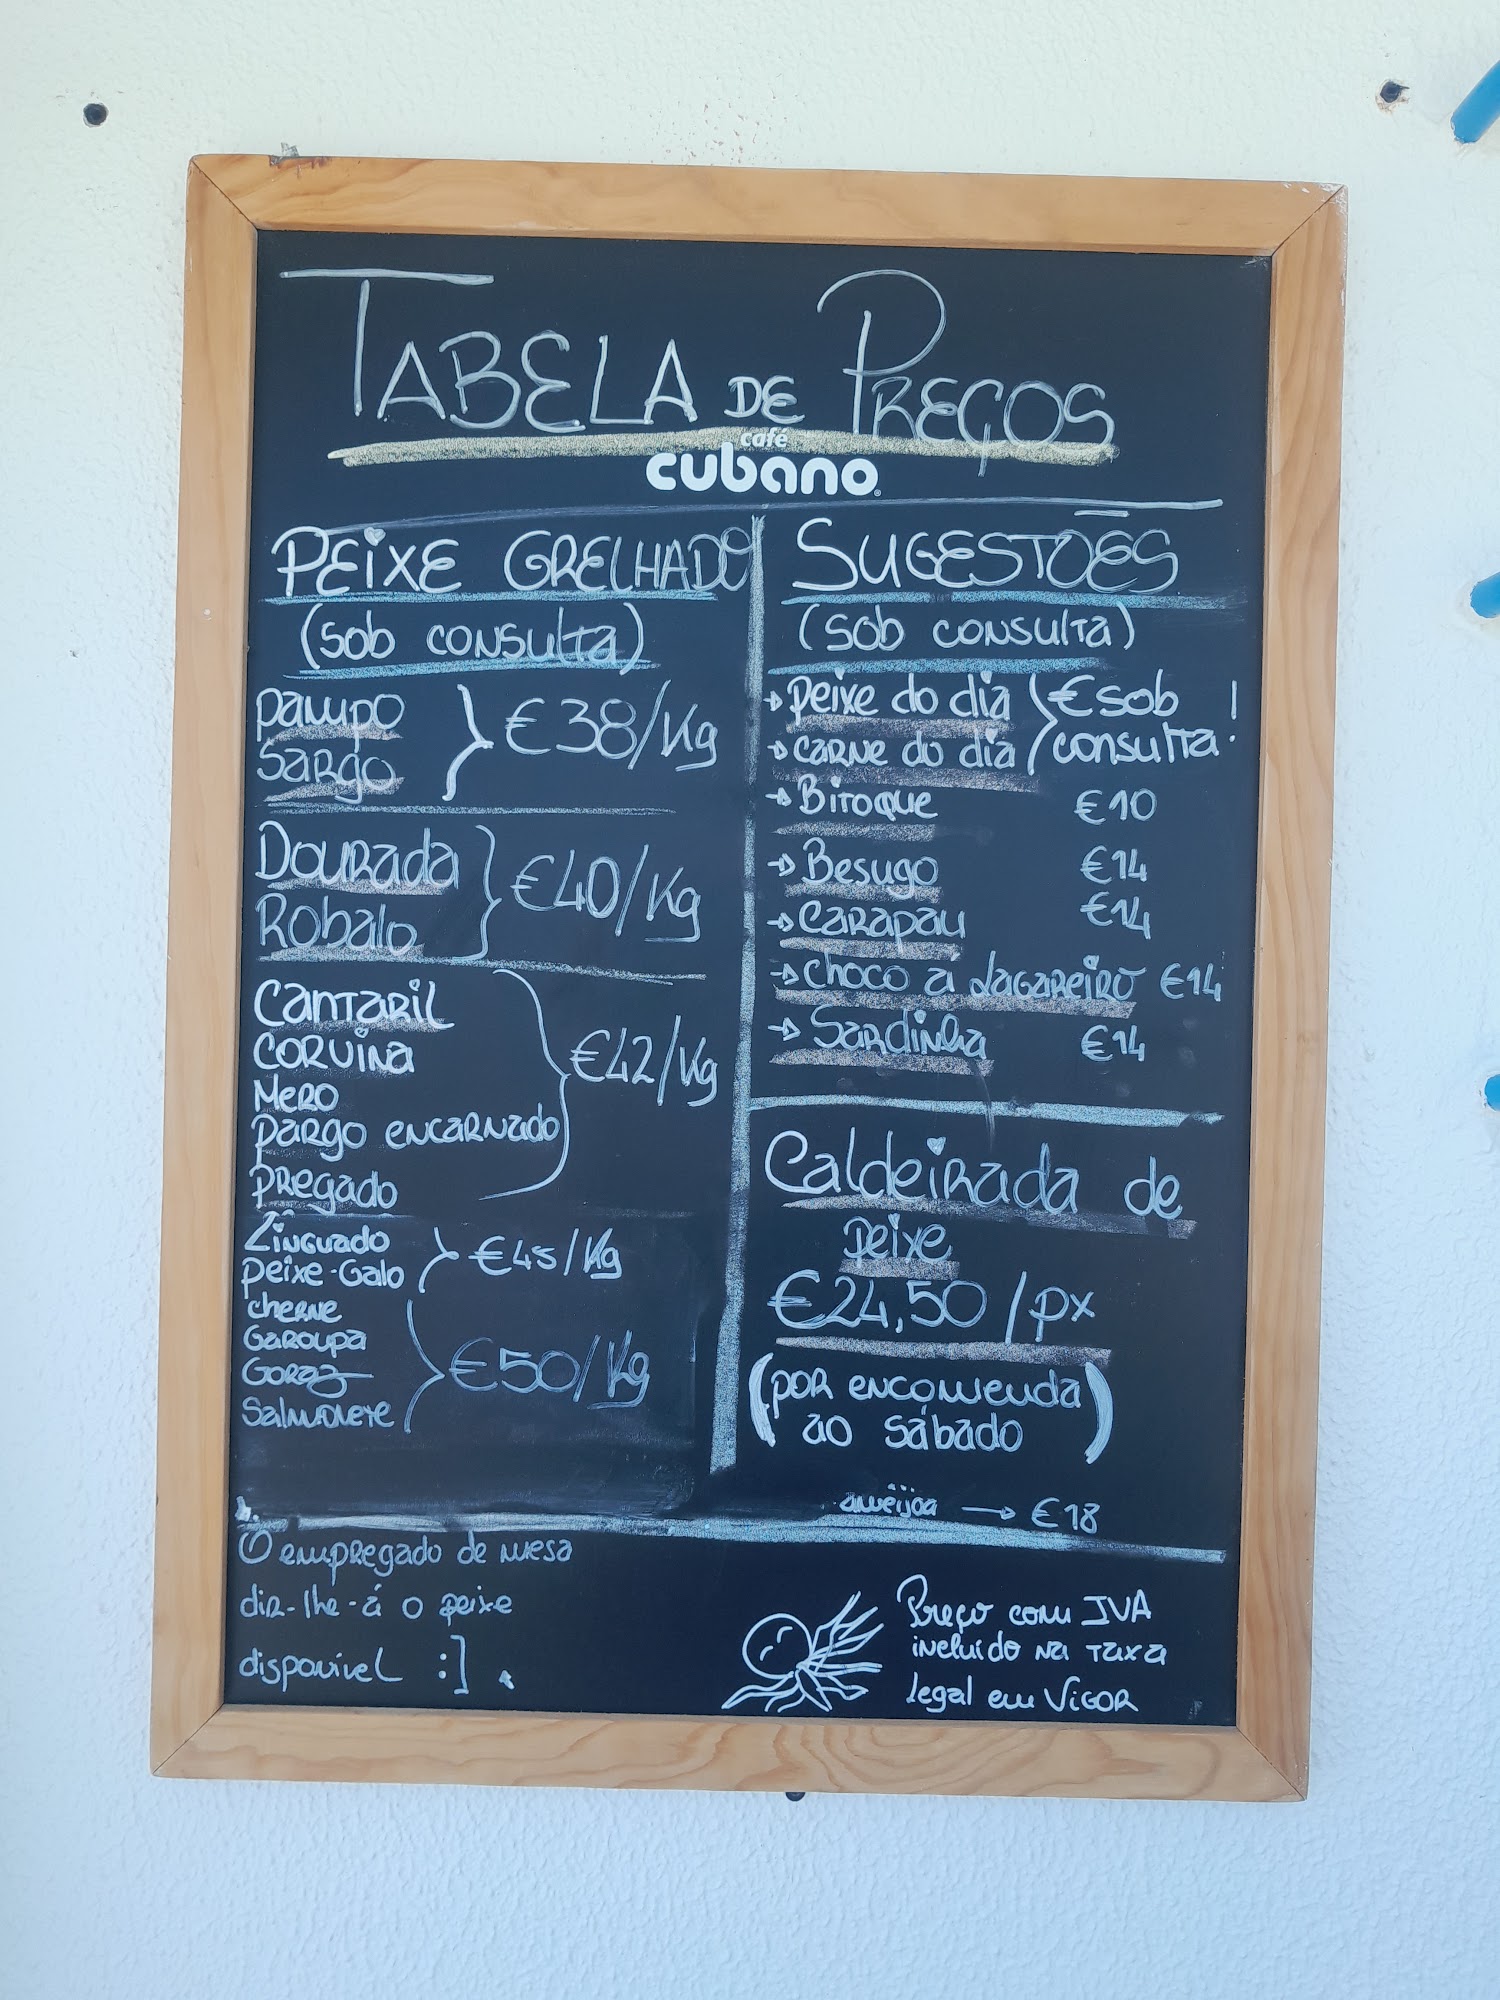 TABELA DE PREÇOS
café
cubano
PEIXE GRELHADO
(sob consulta)
pampo
Sargo
€38/Kg
Dourada
Robalo
€40/Kg
Cantaril
Corvina
Nero
pargo encarnado
pregado
€42/Kg
Linguado
peixe-Galo
€45/Kg
cherne
Garoupa
Goraz
Salmonete
€50/Kg
SUGESTÕES
(sob consulta)
→ peixe do dia
→ carne do dia
€ sob consulta!
→ Bitoque €10
→ Besugo €14
→ Carapau €14
→ choco á Lagareiro €14
→ Sardinha €14
Caldeirada de
peixe
€24,50 /px
(por encomenda
ao sábado)
ameijoa → €18
O empregado de mesa
dir-lhe-á o peixe
disponivel :]
Preço com IVA
incluído na taxa
legal em VIGOR